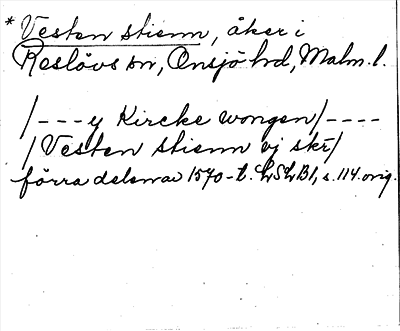 * Vesten stienn, åker i
Reslövs sn, Onsjö hd, Malm. l.
/---y Kircke wongen/----
/Vesten stienn vj skr/
förra delen av 1570-t. LSLB1, s. 114. orig.